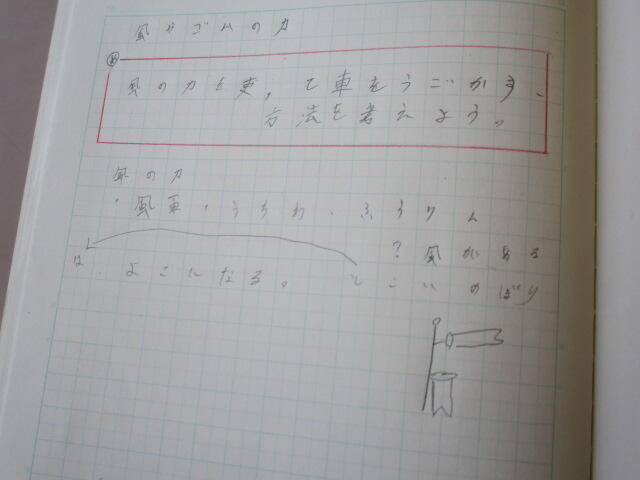 風やゴムの力
め
風の力を使って車をうごかす
方法を考えよう。
風の力
・風車・うちわ・ふうりん
？風がある
と こいのぼり
は、よこになる。